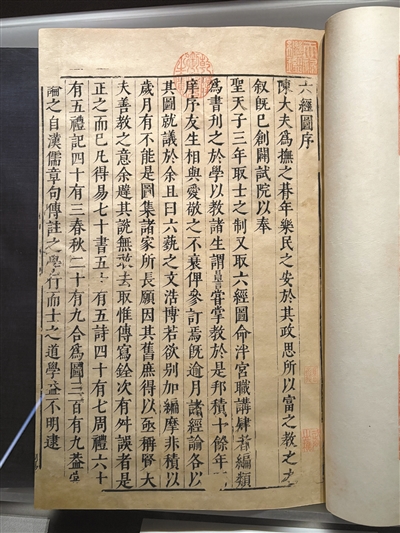 六經圖序
陳大夫為撫之朞年樂民之安於其政思所以富之教之之
叙既已創闢試院以奉
聖天子三年取士之制又取六經圖命泮宮職講肄者編類
為書刋之於學以教諸生謂嘗掌教於是邦積十餘年
庠序友生相與愛敬之不衰俾參訂焉既逾月諸經論各以
其圖就議於余且曰六蓺之文浩博若欲別加編摩非積以
歲月有不能是圖集諸家所長願因其舊庶得以亟稱賢大
夫善教之意余韙其説無敢去取惟傳寫銓次有舛誤者是
正之而已凡得易七十書五十有五詩四十有七周禮六十
有五禮記四十有三春秋二十有九合為圖三百有九蓋嘗
論之自漢儒章句傳註之學行而士之道學益不明逮